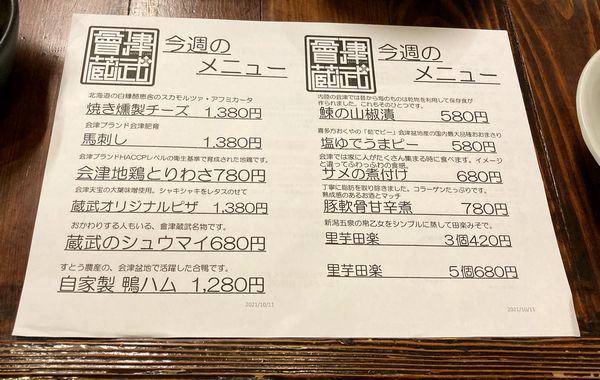 會津
蔵武
今週の
メニュー
北海道の白糠酪恵舎のスカモルツァ・アフミカータ
焼き燻製チーズ 1,380円
会津ブランド会津肥育
馬刺し 1,380円
会津ブランドHACCPレベルの衛生基準で育成された地鶏です。
会津地鶏とりわさ780円
会津天宝の大葉味噌使用。シャキシャキをレタスのせて
蔵武オリジナルピザ 1,380円
おかわりする人もいる、會津蔵武名物です。
蔵武のシュウマイ680円
すとう農産の、会津盆地で活躍した合鴨です。
自家製 鴨ハム 1,280円
2021/10/11
會津
蔵武
今週の
メニュー
内陸の会津では昔から海のものは乾物を利用して保存食が
作られました。これもそのひとつです。
鰊の山椒漬 580円
喜多方おくやの「茹でピー」会津盆地産の国内最大品種おおまさり
塩ゆでうまピー 580円
会津では家に人がたくさん集まる時に食べます。イメージ
と違ってふわっふわの食感。
サメの煮付け 680円
丁寧に脂肪を取り除きました。コラーゲンたっぷりです。
熟成感のあるお酒とマッチ
豚軟骨甘辛煮 780円
新潟五泉の帛乙女をシンプルに蒸して田楽みそで。
里芋田楽 3個420円
里芋田楽 5個680円
2021/10/11